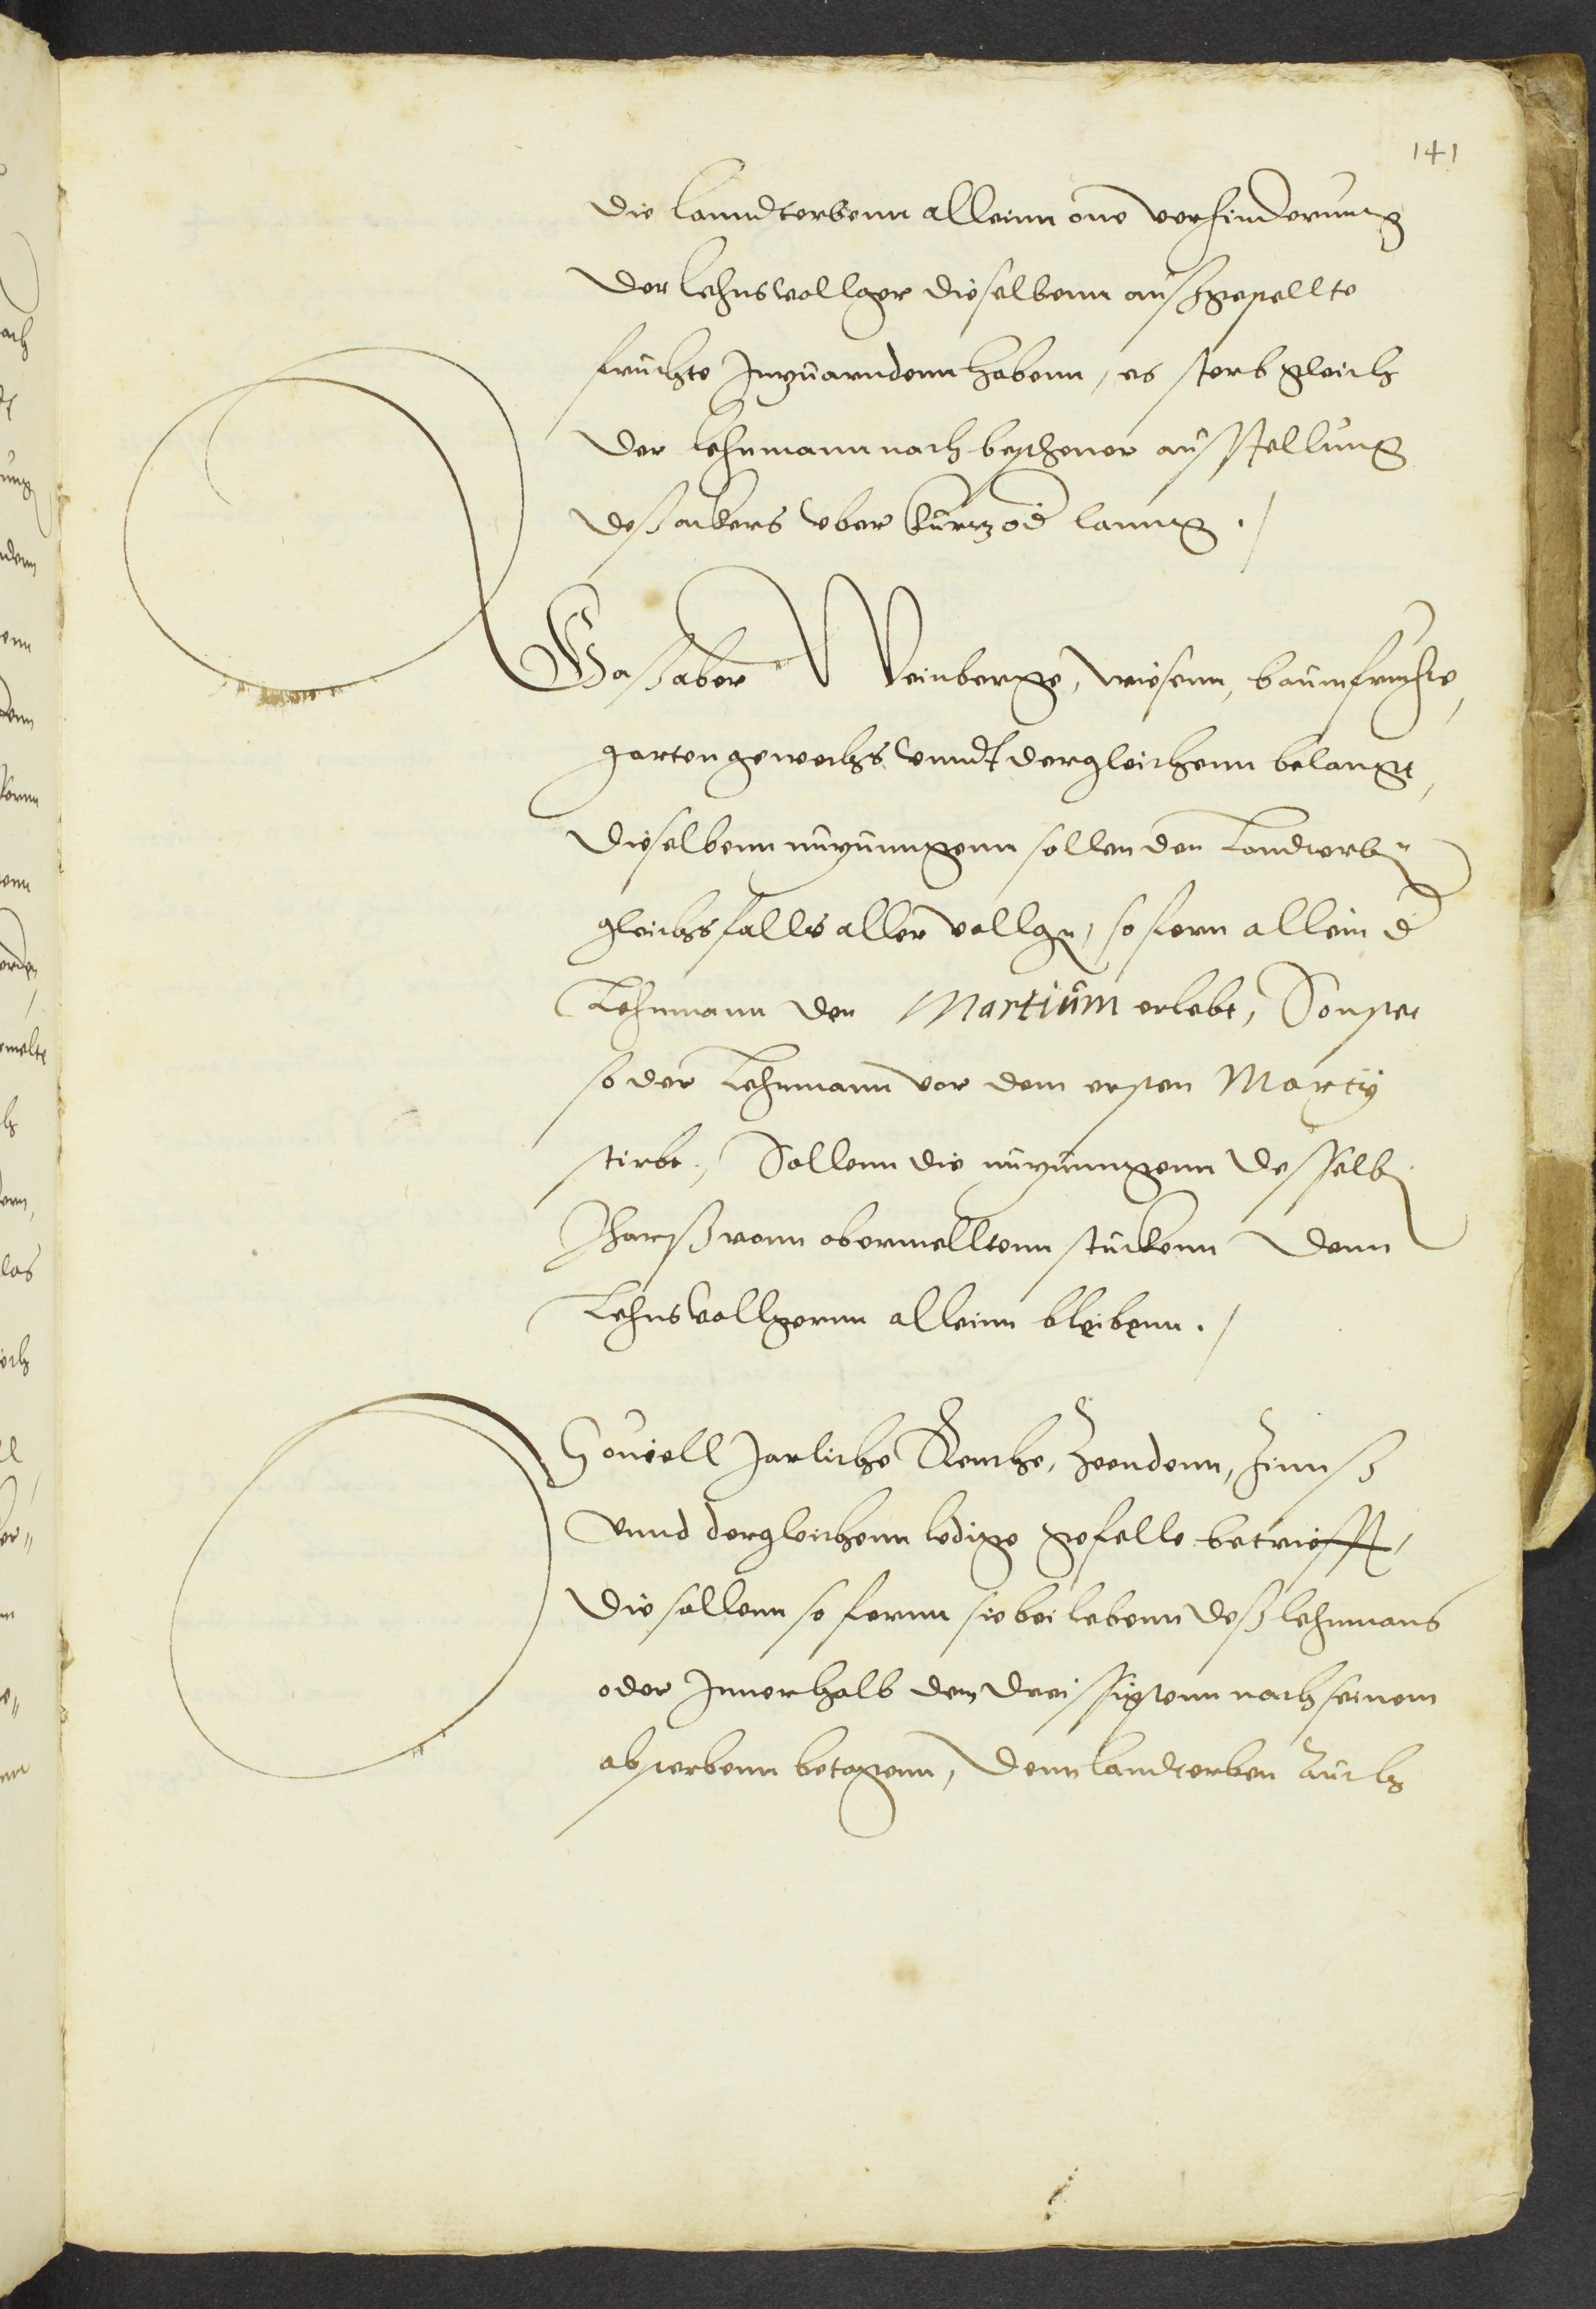 141
die lanndterbenn alleinn one verhinderung
der lehnsvollger dieselbenn ausgestellte
fruchte Inzuarndenn habenn, es sterb gleich
der Lehnmann nach beschener ausstellung
deß ackers vber kurtz od lanng.
Waß aber Weinberge, wiesenn, baumfruchte,
gartengewechs vnndt dergleichenn belangt,
dieselbenn nuzungenn sollen den Landterben
gleichsfalls aller vollgn, so fern allein d
Lehnmann den Martium erlebt, Sonsten
so der Lehnmann vor dem ersten Martÿ
stirbt, Sollenn die nuzungenn desselben
Jharß vonn obermelltenn stuckenn denn
Lehnsvollgernn alleinn bleibenn.
Souiell Jarliche Renthe, Zeendenn, Zinnß
vnnd dergleichenn ledige gefelle betriefft,
die sollenn so fernn sie bei lebenn deß lehnmans
oder Innerhalb dem dreissigstenn nach seinem
absterbenn betagenn, denn landterben Auch